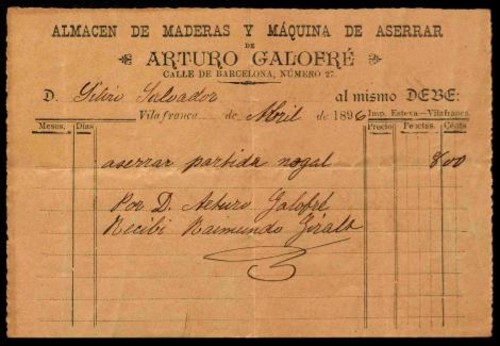 ALMACEN DE MADERAS Y MÁQUINA DE ASERRAR
DE
ARTURO GALOFRÉ
CALLE DE BARCELONA, NÚMERO 27.
D. Salvador al mismo DEBE:
Vilafranca de Abril de 1896 Imp. Esteva-Vilafranca
Meses. Días Precio Pesetas. Cénts
aserrar partida nogal 8 00
Por D. Arturo Galofré
Recibi Raimundo Giralt